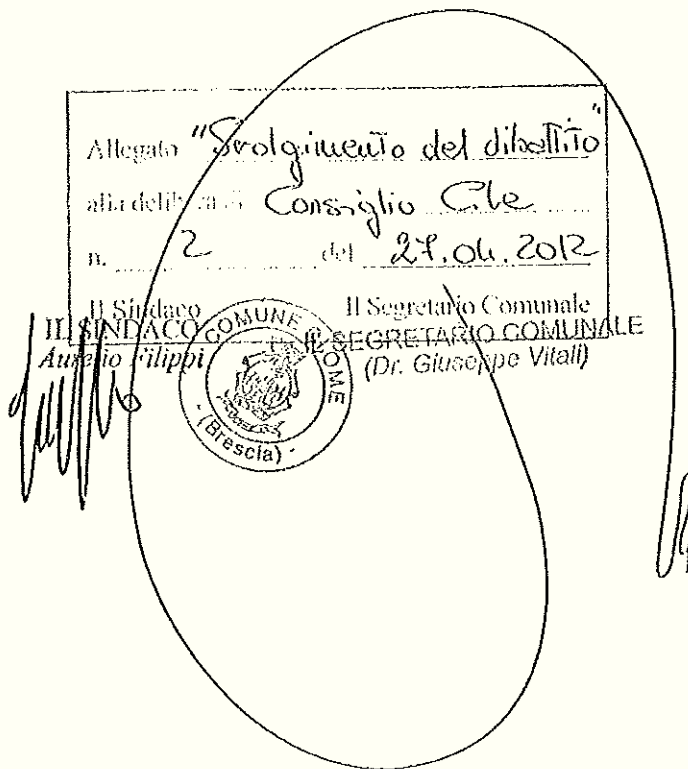 Allegato "Svolgimento del dibattito"
alla delibera di Consiglio C.le
n. 2 del 27.04.2012
Il Sindaco Il Segretario Comunale
IL SINDACO IL SEGRETARIO COMUNALE
Aurelio Filippi (Dr. Giuseppe Vitali)
COMUNE OME
- (Brescia) -